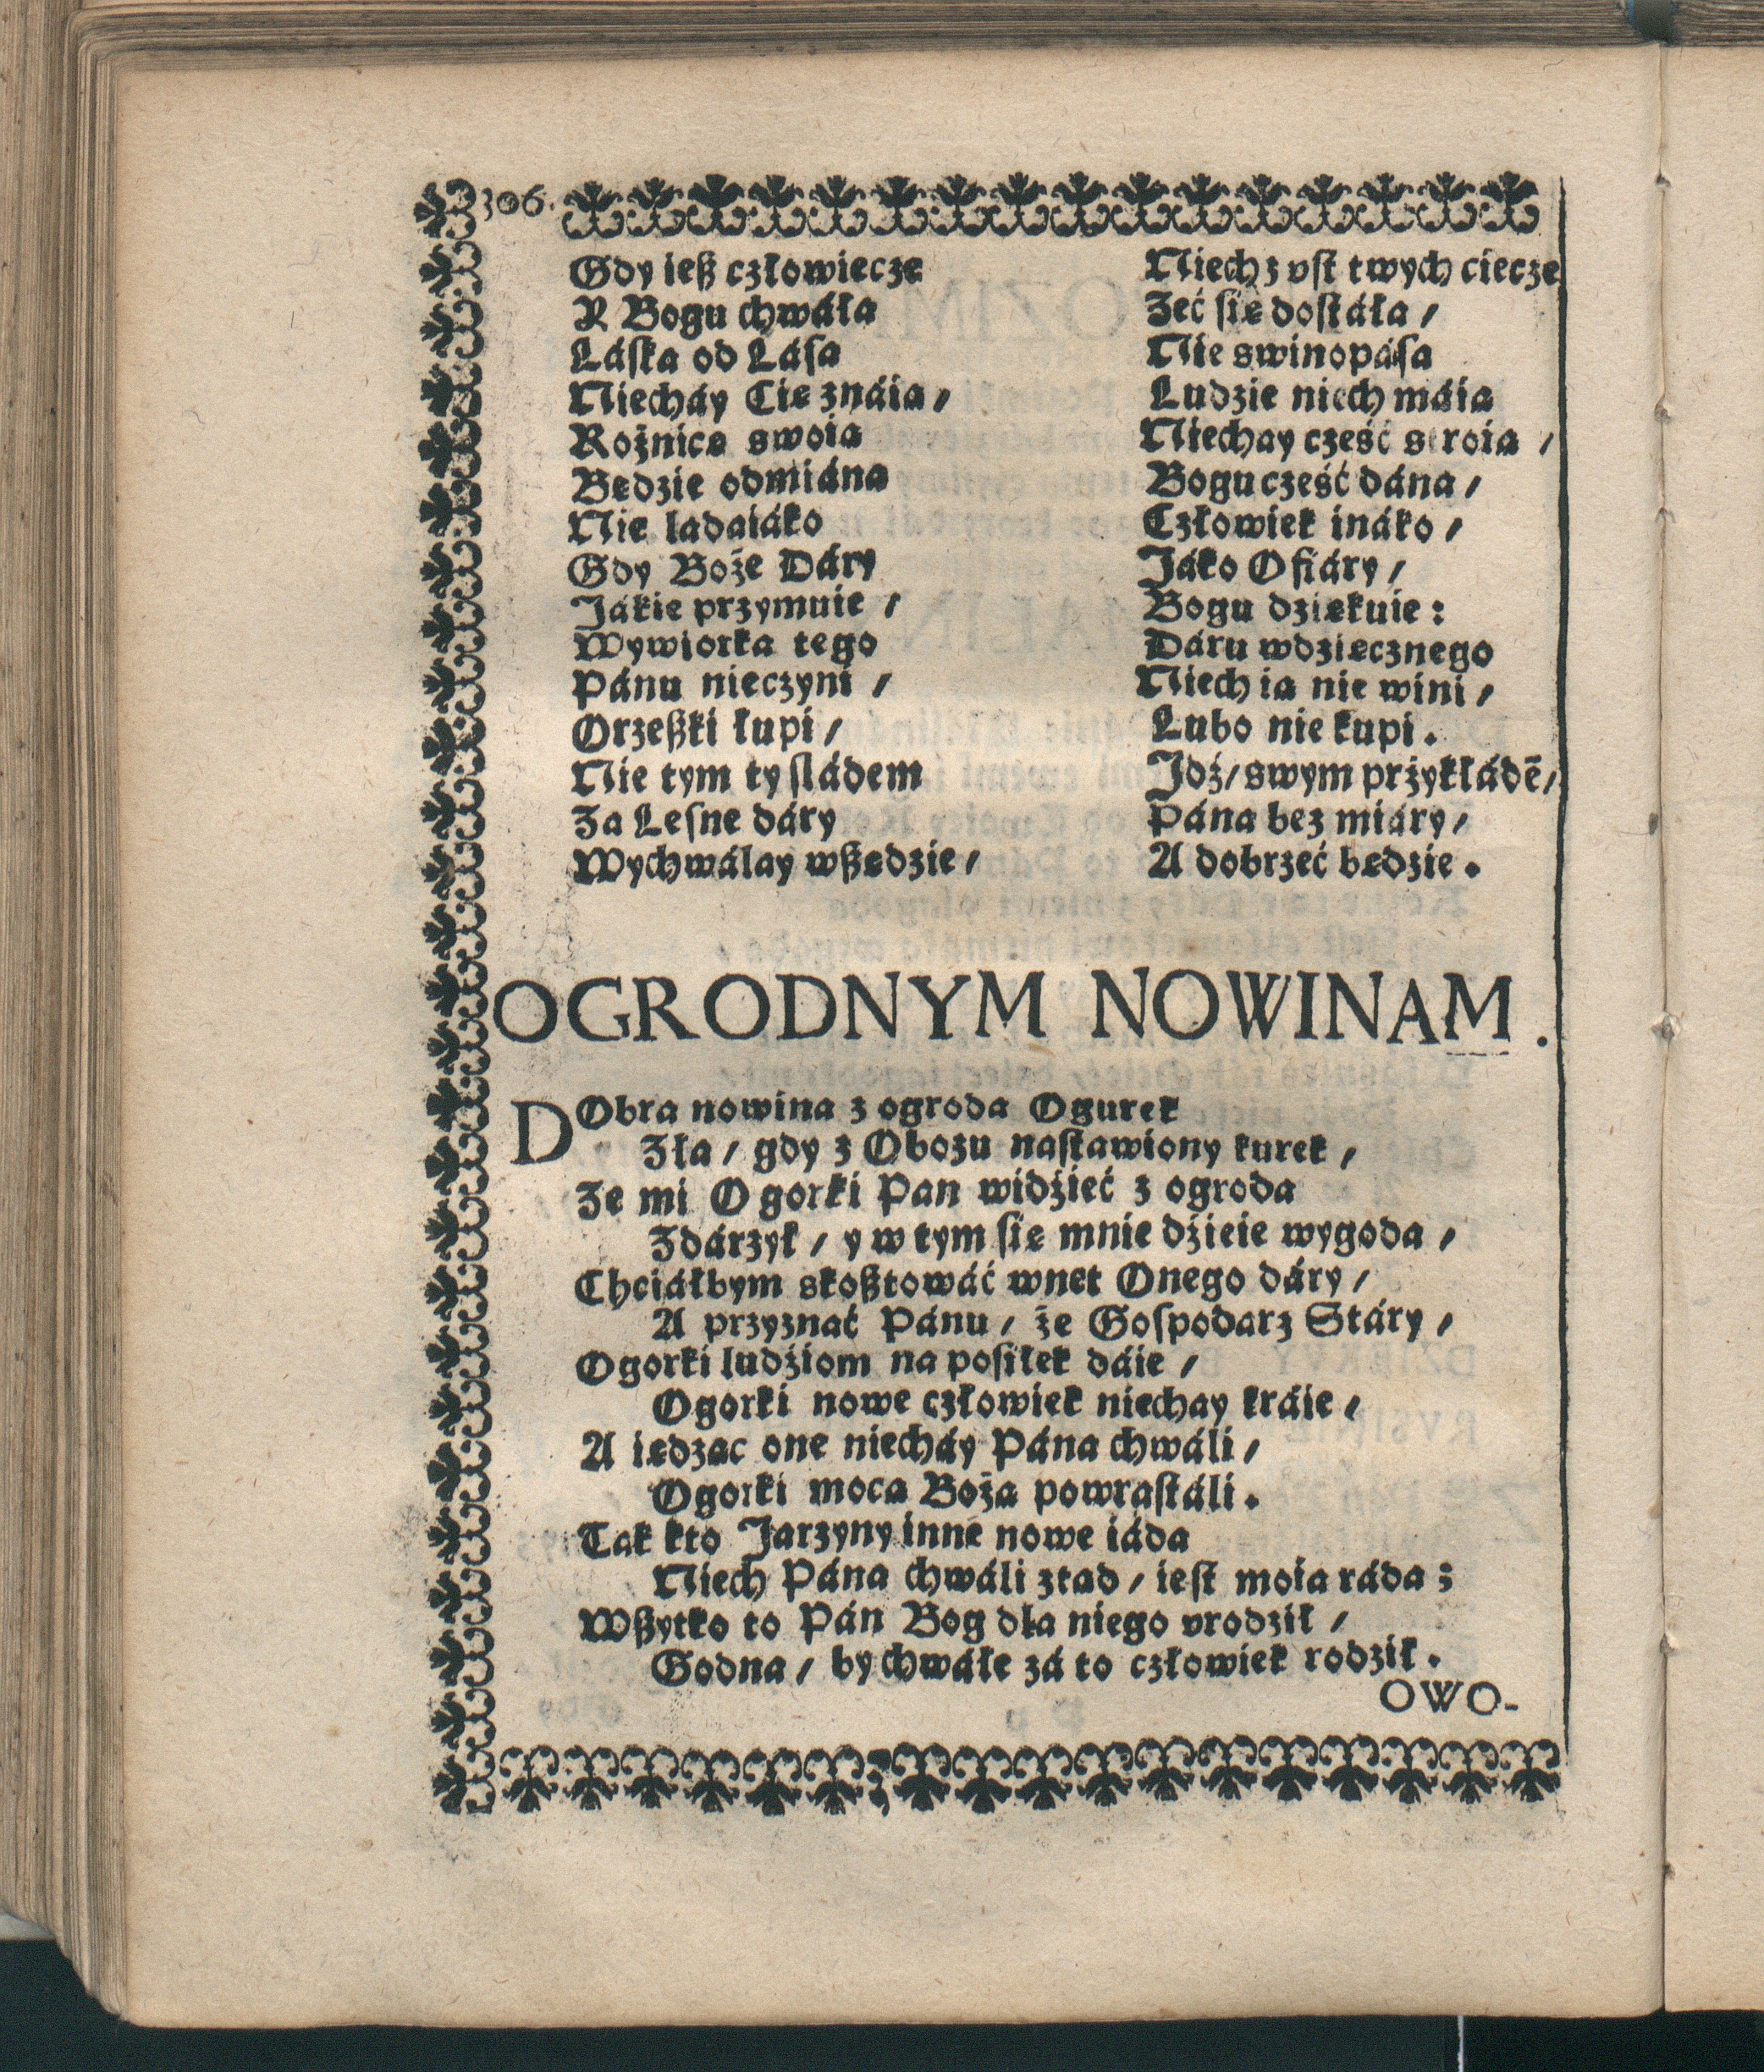 306.
Gdy ieß człowiecze Niech z vst twych ciecze
Y Bogu chwáła Zeć się dostáła /
Láska od Lása Nie swinopása
Niecháy Cię znáią / Ludzie niech máią
Rożnicę swoią Niechay cześć stroią /
Będzie odmiána Bogu cześć dána /
Nie ladaiáko Człowiek ináko /
Gdy Boże Dáry Jáko Ofiáry /
Jákie przymuie / Bogu dziękuie :
Wywiorka tego Dáru wdzięcznego
Pánu nieczyni / Niech ia nie wini /
Orzeßki łupi / Lubo nie kupi .
Nie tym ty sládem Jdź / swym przykłádē /
Za Lesne dáry Pána bez miáry /
Wychwálay wßędzie / A dobrzeć będzie .
OGRODNYM NOWINAM .
DObra nowina z ogroda Ogurek
Zła / gdy z Obozu nastawiony kurek /
Ze mi Ogorki Pan widźieć z ogroda
Zdárzył / y w tym się mnie dźieie wygoda /
Chciáłbym skoßtowáć wnet Onego dáry /
A przyznać Pánu / że Gospodarz Stáry /
Ogorki ludźiom na posiłek dáie /
Ogorki nowe człowiek niechay kráie /
A iedząc one niecháy Pána chwáli /
Ogorki mocą Bożą powrastáli .
Tak kto Jarzyny inne nowe iáda
Niech Pána chwáli ztąd / iest moia ráda ;
Wßytko to Pán Bog dla niego vrodził /
Godna / by chwałę zá to człowiek rodził .
OWO-